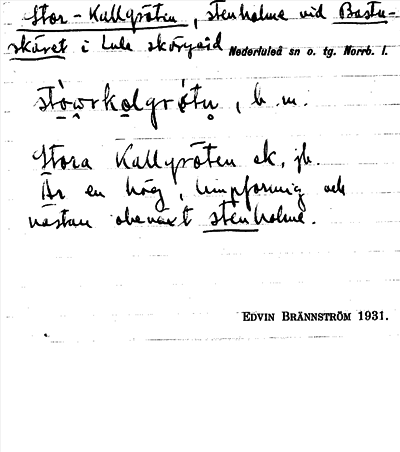 Stor-Kallgröten, stenholme vid Bastu-
skäret i Lule skärgård Nederluleå sn o. tg. Norrb. l.
stò̠wrkal̠grö́tu̥, b. m.
Stora Kallgröten ek, jb.
Är en hög, limpformig och
nästan obevuxt stenholme.
EDVIN BRÄNNSTRÖM 1931.